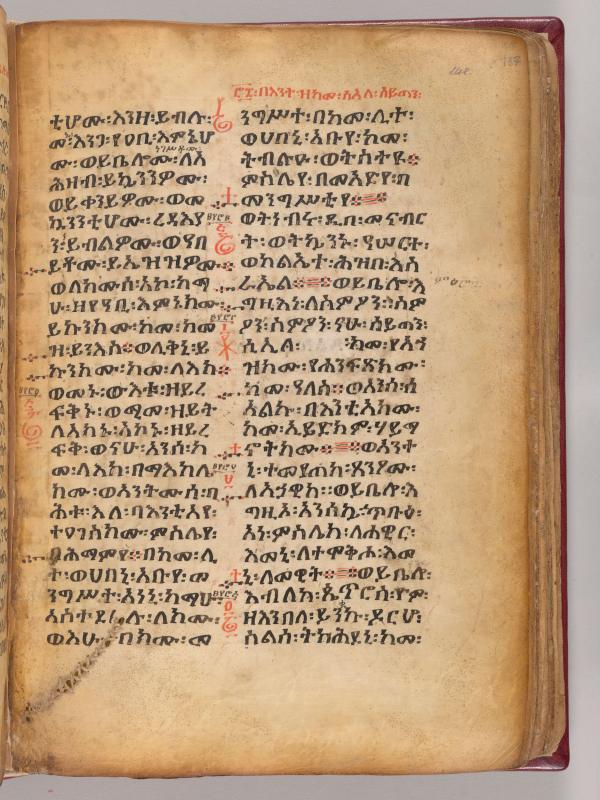 ፻፹፡በእንተ፡ዝከመ፡ሰአለ፡ሰይጣን፡
ቲሆሙ፡እንዘ፡ይብሉ፡
መ፡እንጋ፡የዐቢ፡እምኔሆ
ነገሥቶሙ፡
ሙ፡ወይቤሎሙ፡ለአ
ሕዛብ፡ይኴንንዎሙ፡
ወይቀንይዎሙ፡ወመ
ኳንንቲሆሙ፡ረዳእያ
ን፡ይብልዎሙ፡ወሃበ
ይቶሙ፡ይኤዝዝዎሙ፡
ወለክሙሰ፡አኮ፡ከማ
ሁ፡ዘየዓቢ፡እምኔክሙ፡
ይኩንክሙ፡ከመ፡ከመ
ዝ፡ይንእስ፡ወሊቅኒ፡ይ
ኩንክሙ፡ከመ፡ላእክ፡
ወመኑ፡ውእቱ፡ዘይረ
ፍቅኑ፡ወሚመ፡ዘይት
ለአከኑ፡አኮኑ፡ዘይረ
ፍቅ፡ወናሁ፡አንሰ፡ከ
መ፡ላእክ፡በማእከሌ
ክሙ፡ወአንትሙሰ፡በ
ሕቱ፡እለ፡በእንቲአየ፡
ተዐገስክሙ፡ምስሌየ፡
በሕማምየ፡በከመ፡ሊ
ተ፡ወሀበኒ፡አቡየ፡መ
ንግሥተ፡አነኒ፡ከማሁ፡
አስተዴሉ፡ለክሙ፡
ወእሁ፡በክሙ፡መ
ንግሥተ፡በከመ፡ሊተ፡
ወሀበኒ፡አቡየ፡ከመ፡
ትብልዑ፡ወትስትዩ፡
ምስሌየ፡በማእድየ፡በ
መንግሥቲየ፡
ወትነብሩ፡ዲበ፡መናብር
ት፡ወትኳንኑ፡ዓሠርተ፡
ወክልኤተ፡ሕዝበ፡እስ
ራኤል፡ወይቤሎ፡እ
ግዚእነ፡ለስምዖን፡ስም
ዖን፡ስምዖን፡ናሁ፡ሰይጣን፡
ሰአለ፡ከመ፡የአኀ
ዝክሙ፡የሐንፍጽክሙ፡
ከመ፡ዓለስ፡ወአንሰ፡ሰ
አልኩ፡በእንቲአክሙ፡
ከመ፡ኢይድክም፡ሃይማ
ኖትክሙ፡ወአንተ
ኒ፡ተመየጠከ፡አጽንዖሙ፡
ለአኃዊከ፡ወይቤሎ፡እ
ግዚኦ፡አንሰኬ፡ጥቡዕ፡
አነ፡ምስሌከ፡ለሐዊር፡
እመኒ፡ለተሞቅሖ፡እመ
ኒ፡ለመዊት፡ወይቤሎ፡
እብለከ፡ጴጥሮስ፡ዮም፡
ዘእንበለ፡ይንኩ፡ዶርሆ፡
ስልሰ፡ትክሕደኒ፡ከመ፡